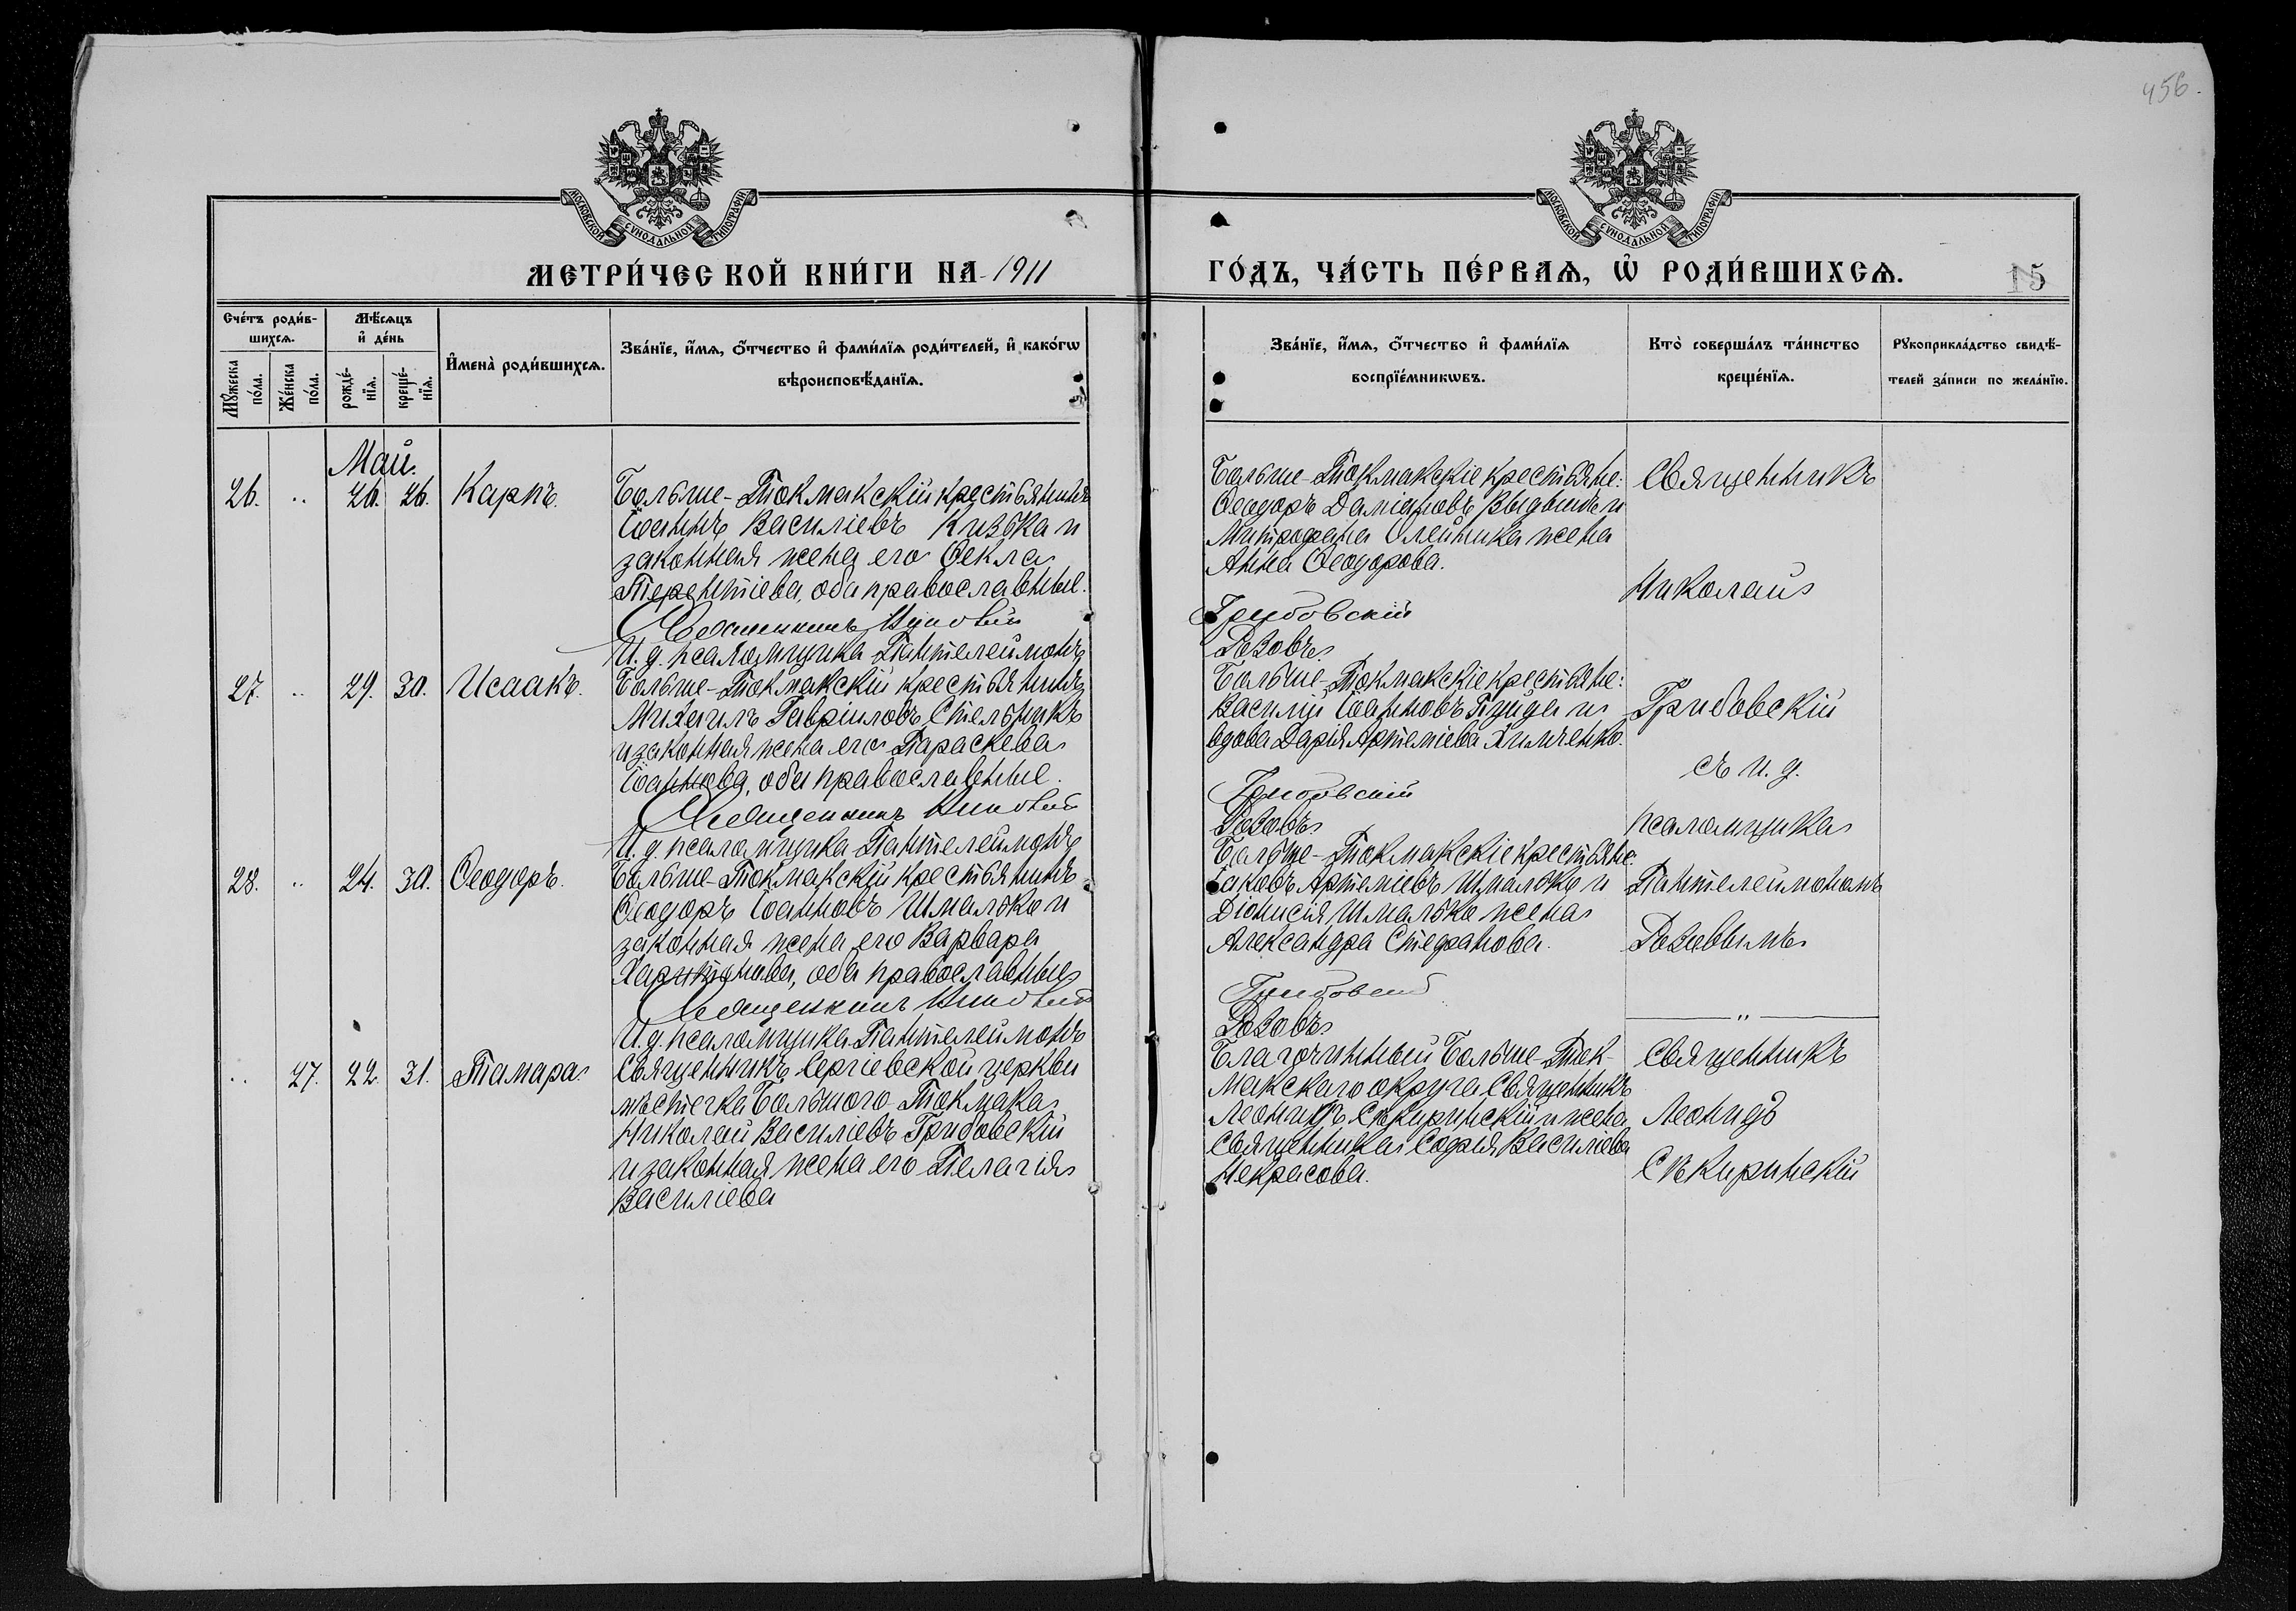 456.
МОСКОВСКОЙ СѴНОДАЛЬНОЙ ТИПОГРАФІИ
МОСКОВСКОЙ СѴНОДАЛЬНОЙ ТИПОГРАФІИ
МЕТРИ́ЧЕСКОЙ КНИ́ГИ НА 1911
ГО́ДЪ, ЧА́СТЬ ПЕ́РВАЯ, Ѡ РОДИ́ВШИХСЯ.
15
Сче́тъ роди́в-
шихсѧ.
Му́жеска
по́ла.
Же́нска
по́ла.
Мѣ́сѧцъ
и҆ де́нь
рожде́-
нїѧ.
креще́-
нїѧ.
И҆мена̀ роди́вшихсѧ.
Зва́нїе, и҆́мѧ, ѻ҆́тчество и҆ фами́лїѧ роди́телей, и҆ како́гѡ
вѣроисповѣ́данїѧ.
Зва́нїе, и҆́мѧ, ѻ҆́тчество и҆ фами́лїѧ
воспрїе́мникѡвъ.
Кто̀ соверша́лъ та́инство
креще́нїѧ.
Рꙋкоприкла́дство свидѣ́-
телей за́писи по жела́нїю.
Май.
26. .. 26. 26. Карпъ.
Больше-Токмакскій крестьянинъ
Іоаннъ Василіевъ Кизька и
законная жена его Ѳекла
Терентіева, оба православные.
Священникъ Николай
И. д. псаломщика Пантелеймонъ
Больше-Токмакскіе крестьяне:
Ѳеодоръ Даміановъ и
Митрофана Олейника жена
Анна Ѳеодорова.
Грибовскій
Священникъ
Николай
27. .. 29. 30. Исаакъ.
Больше-Токмакскій крестьянинъ
Михаилъ Гавріиловъ Стельникъ
и законная жена его Параскева
Іоаннова, оба православные.
Священникъ Николай
И. д. псаломщика Пантелеймонъ
Больше-Токмакскіе крестьяне:
Василій Іоанновъ и
вдова Дарія Артеміева Химченко.
Грибовскій
Грибовскій
съ и. д.
псаломщика
28. .. 24. 30. Ѳеодоръ.
Больше-Токмакскій крестьянинъ
Ѳеодоръ Іоанновъ Шмалько и
законная жена его Варвара
Харитонова, оба православные
Священникъ Николай
И. д. псаломщика Пантелеймонъ
Больше-Токмакскіе крестьяне:
Іаковъ Артеміевъ Шмалько и
Діонисія Шмалько жена
Александра Стефанова.
Грибовскій
Пантелеймономъ
"
.. 27. 22. 31. Тамара.
Священникъ Сергіевской церкви
мѣстечка Большого Токмака
Николай Василіевъ Грибовскій
и законная жена его Пелагія
Василіева
Благочинный Больше-Ток-
макскаго округа Священникъ
Леонидъ Сѣкиринскій и жена
Священника Софія Василіева
Некрасова.
Священникъ
Леонидъ
Сѣкиринскій